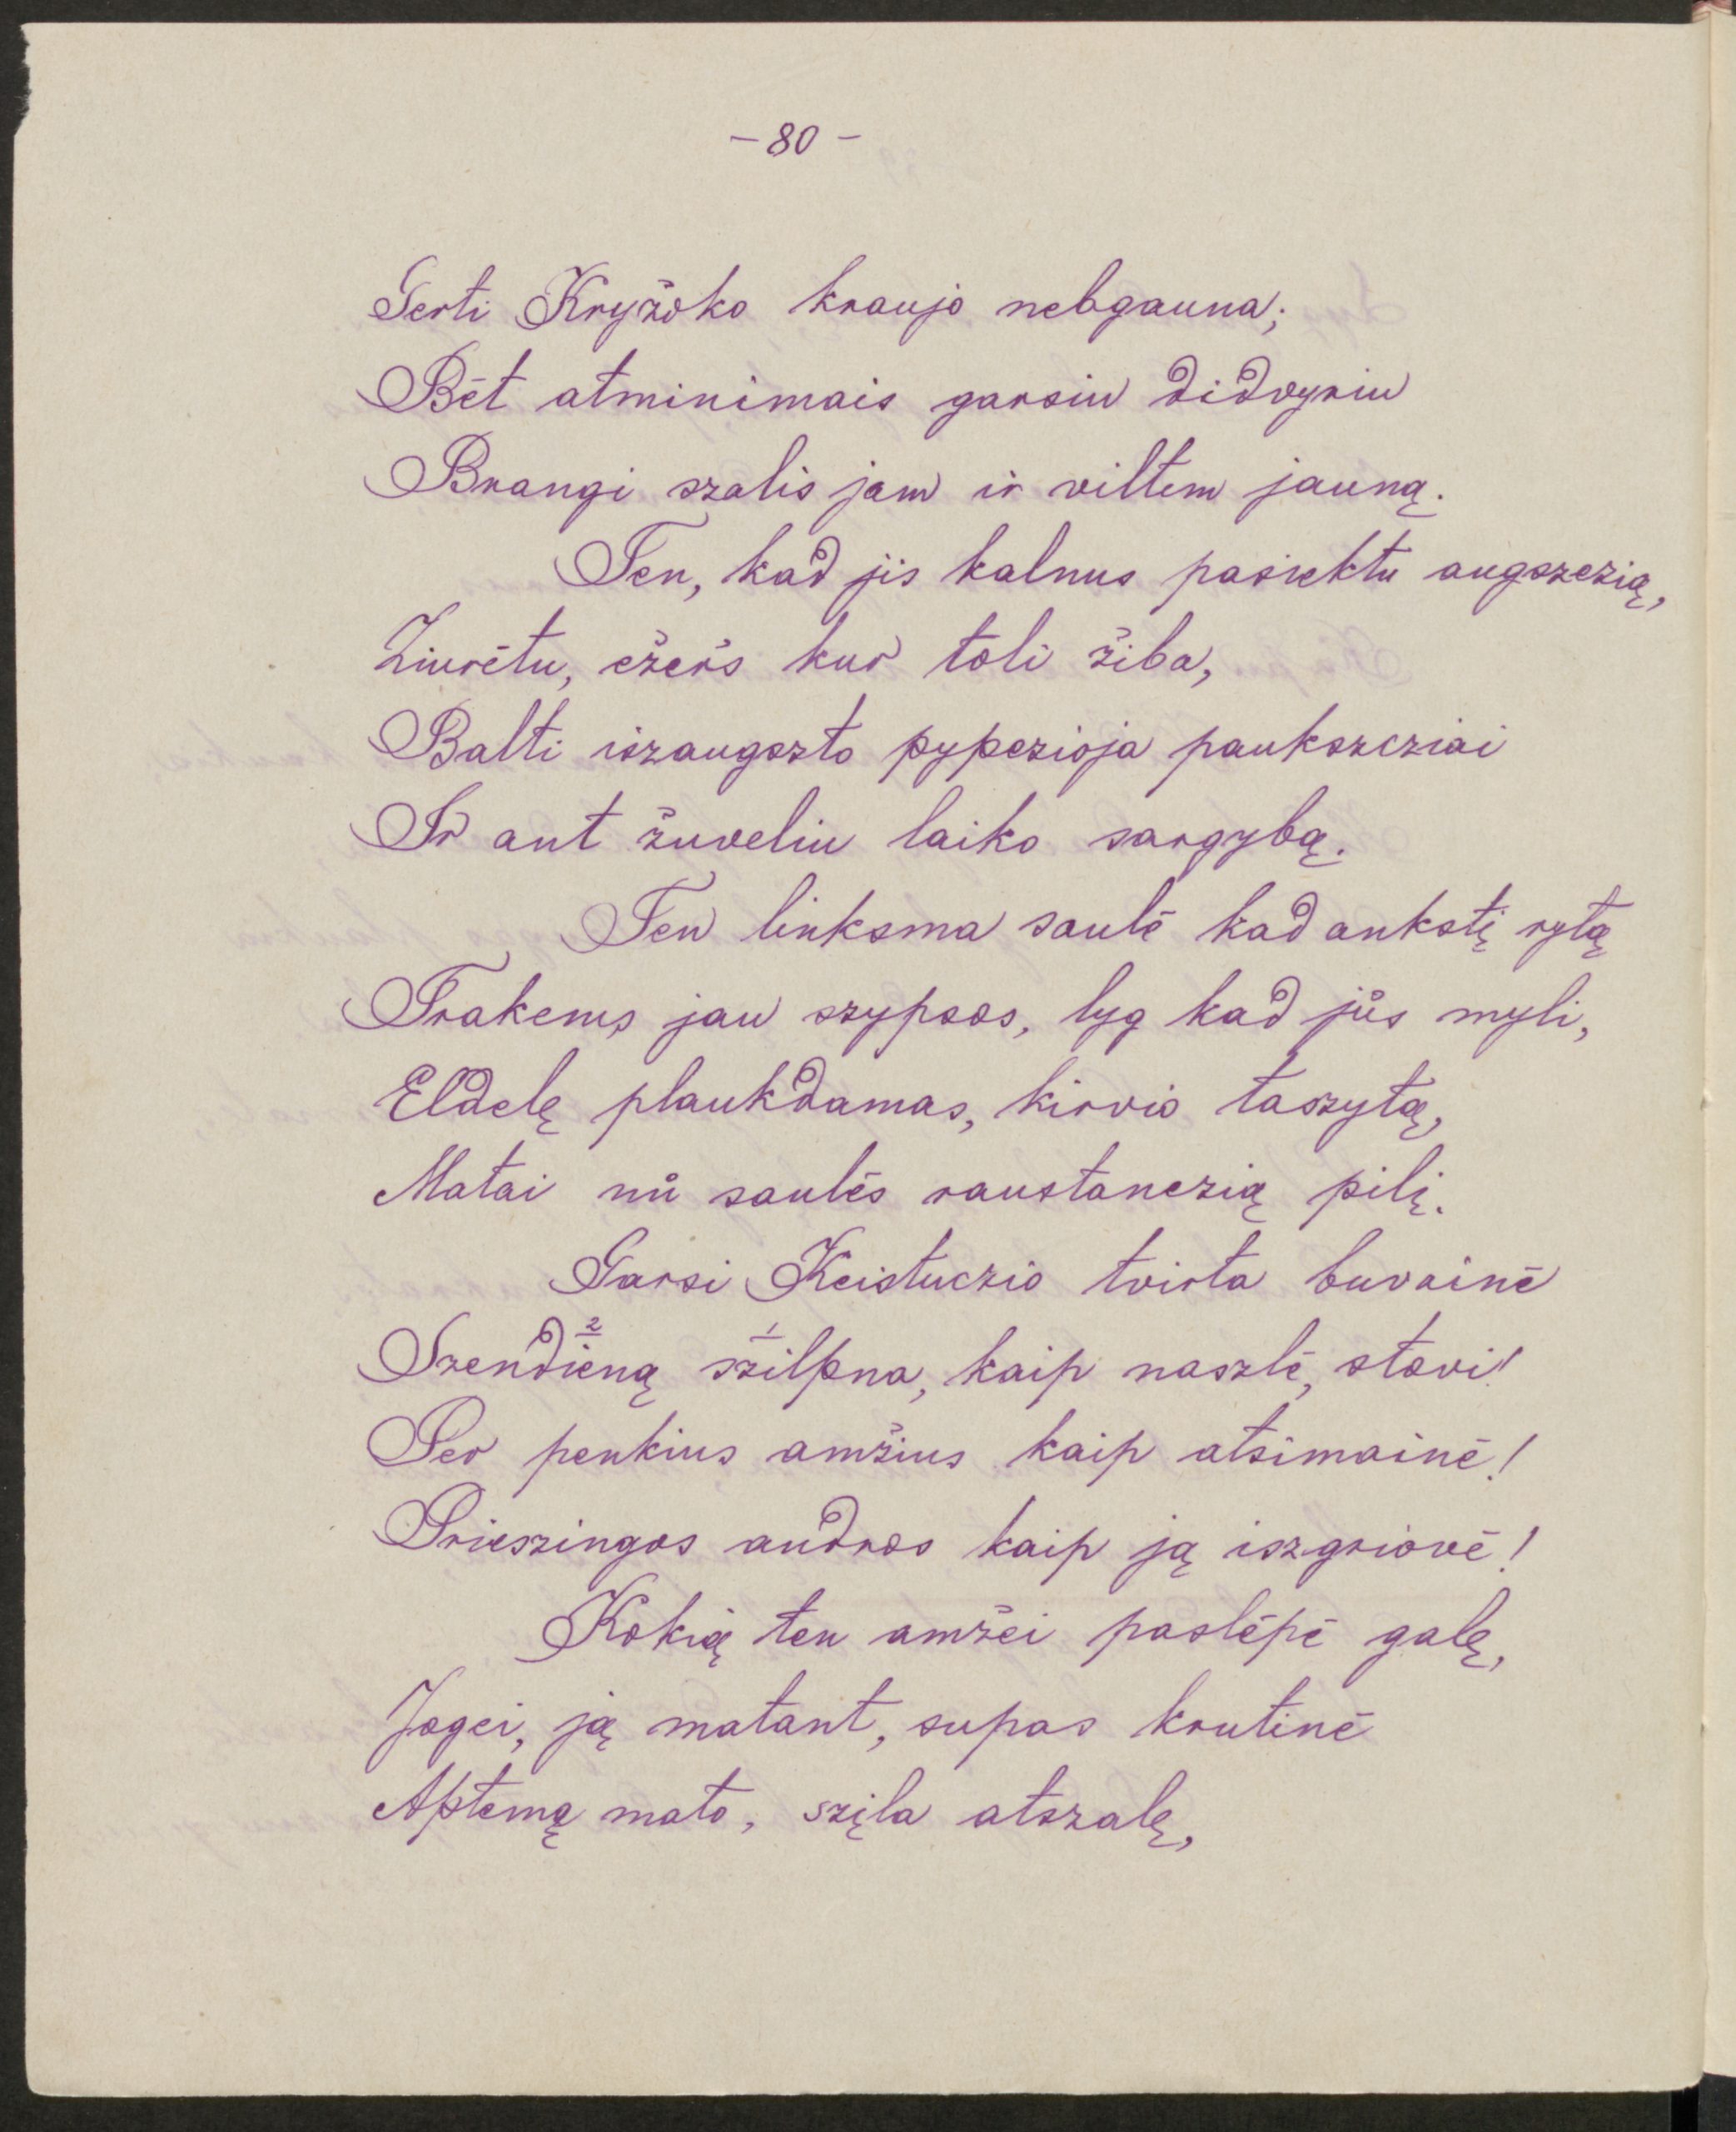 - 80 -
Gerti Kryžoko kraujo nebgauna;
Bėt atminimais garsiu didvyriu
Brangi szalis jam ir viltem jauną.
Ten, kad jis kalnus pasiektu augszczią,
Ziurėtu, ežers kur toli žiba,
Balti iszaugszto pypczioja paukszcziai
Ir ant žuveliu laiko sargybą.
Ten linksma saulė kad ankstį rytą
Trakems jau szypsos, lyg kad jůs myli,
Eldelę plaukdamas, kirvio taszytą,
Matai nů saulės raustanczią pilį.
Garsi Keistuczio tvirta buvainė
Szendieną 2 szilpna 1, kaip naszlė, stovi!
Per penkius amžius kaip atsimainė!
Prieszingos audros kaip ją iszgriovė!
Kokią ten amžei paslėpė galę,
Jogei, ją matant, supas krutinė
Aptemą mato, szįla atszalę,